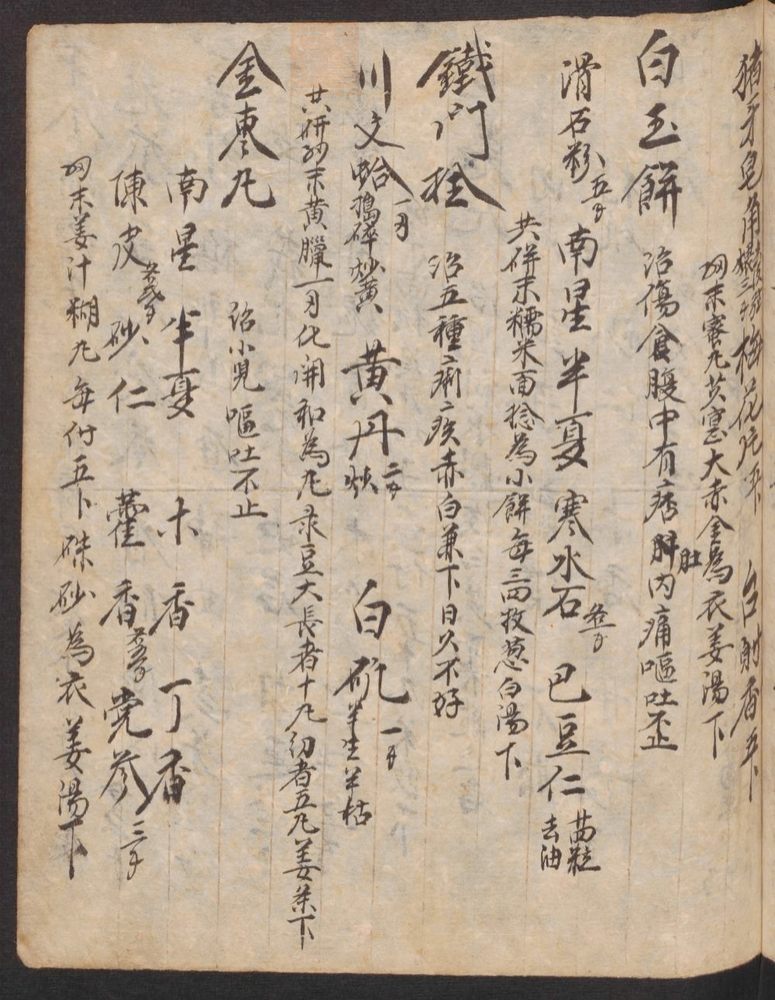 猪牙皂角 梅花片 白射香
为末蜜丸芡實大赤金為衣姜湯下
白玉餅 治傷食腹中有痞肚內痛嘔吐不止
滑石粉五分 南星 半夏 寒水石 巴豆仁 去油
共研末糯米面捻為小餅每三四枚葱白湯下
鐵門拴 治五種痢疾赤白兼下日久不好
川文蛤一刄搗碎炒黄 黄丹二分 白矾一刄半生半枯
共研細末黄臘一刄化開和為丸彔豆大長者十丸幼者五丸姜茶下
金棗丸 治小児嘔吐不止
南星 半夏 木香 丁香
陳皮 砂仁 藿香 党參三分
为末姜汁糊丸每付五卜硃砂為衣姜湯下